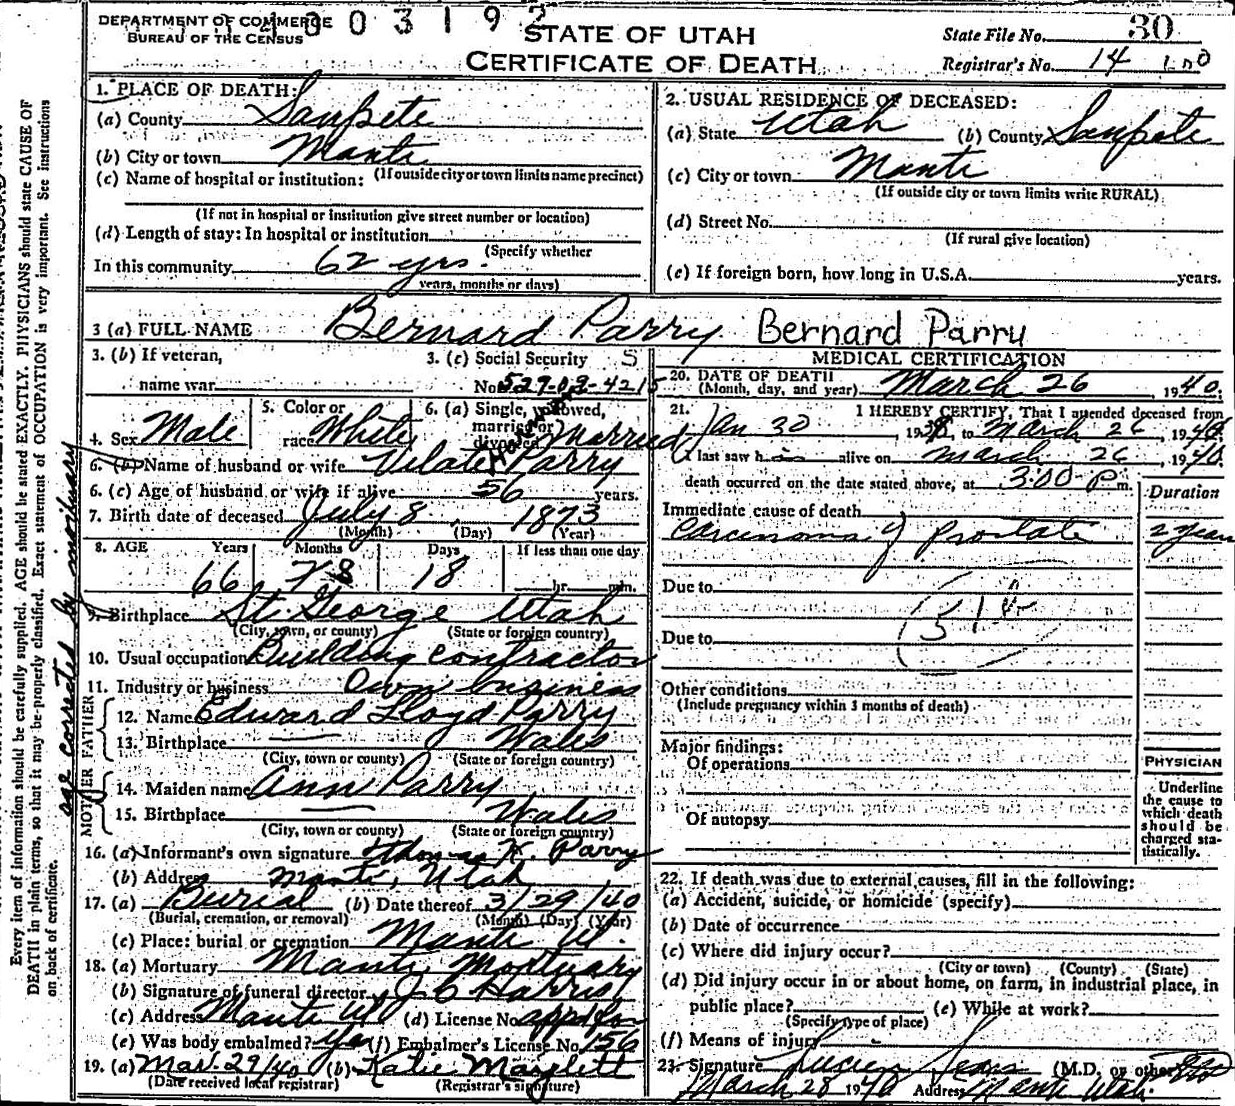 DEPARTMENT OF COMMERCE
BUREAU OF THE CENSUS
0 0 3 1 9 2
STATE OF UTAH
CERTIFICATE OF DEATH
State File No. 30
Registrar's No. 14
Every item of information should be carefully supplied. AGE should be stated EXACTLY. PHYSICIANS should state CAUSE OF
DEATH in plain terms, so that it may be properly classified. Exact statement of OCCUPATION is very important. See instructions
on back of certificate.
age corrected by mortuary
1. PLACE OF DEATH:
(a) County Sanpete
(b) City or town Manti
(If outside city or town limits name precinct)
(c) Name of hospital or institution:
(If not in hospital or institution give street number or location)
(d) Length of stay: In hospital or institution
(Specify whether
In this community 62 yrs.
years, months or days)
2. USUAL RESIDENCE OF DECEASED:
(a) State Utah (b) County Sanpete
(c) City or town Manti
(If outside city or town limits write RURAL)
(d) Street No.
(If rural give location)
(e) If foreign born, how long in U.S.A. years.
3 (a) FULL NAME Bernard Parry Bernard Parry
3. (b) If veteran,
name war
3. (c) Social Security
No. 529-09-4215
4. Sex Male
5. Color or
race White
6. (a) Single, widowed,
married or
divorced Married
6. (b) Name of husband or wife Velate Parry
6. (c) Age of husband or wife if alive 56 years.
7. Birth date of deceased July 8 1873
(Month) (Day) (Year)
8. AGE Years Months Days If less than one day
66 8 18 hr. min.
9. Birthplace St. George Utah
(City, town, or county) (State or foreign country)
10. Usual occupation Building contractor
11. Industry or business Own business
FATHER
12. Name Edward Lloyd Parry
13. Birthplace Wales
(City, town or county) (State or foreign country)
MOTHER
14. Maiden name Ann Parry
15. Birthplace Wales
(City, town or county) (State or foreign country)
16. (a) Informant's own signature Parry
(b) Address Manti, Utah
17. (a) Burial (b) Date thereof 3/29/40
(Burial, cremation, or removal) (Month) (Day) (Year)
(c) Place: burial or cremation Manti Ut.
18. (a) Mortuary Manti Mortuary
(b) Signature of funeral director J C Harris
(c) Address Manti Ut (d) License No. appd for
(e) Was body embalmed? Yes (f) Embalmer's License No. 156
19. (a) Mar. 29/40 (b) Katie Marylett
(Date received local registrar) (Registrar's signature)
MEDICAL CERTIFICATION
20. DATE OF DEATH
(Month, day, and year) March 26 1940.
21. I HEREBY CERTIFY, That I attended deceased from
Jan 30, 19 to March 26, 1940
I last saw him alive on March 26, 1940
death occurred on the date stated above, at 3:00 P m.
Duration
Immediate cause of death
Carcinoma of Prostate 2 years
Due to
51
Due to
Other conditions
(Include pregnancy within 3 months of death)
Major findings:
Of operations
Of autopsy
PHYSICIAN
Underline
the cause to
which death
should be
charged sta-
tistically.
22. If death was due to external causes, fill in the following:
(a) Accident, suicide, or homicide (specify)
(b) Date of occurrence
(c) Where did injury occur?
(City or town) (County) (State)
(d) Did injury occur in or about home, on farm, in industrial place, in
public place? (e) While at work?
(Specify type of place)
(f) Means of injury
23. Signature Lucien Sears (M.D. or other)
March 28 1940 Address Manti Utah